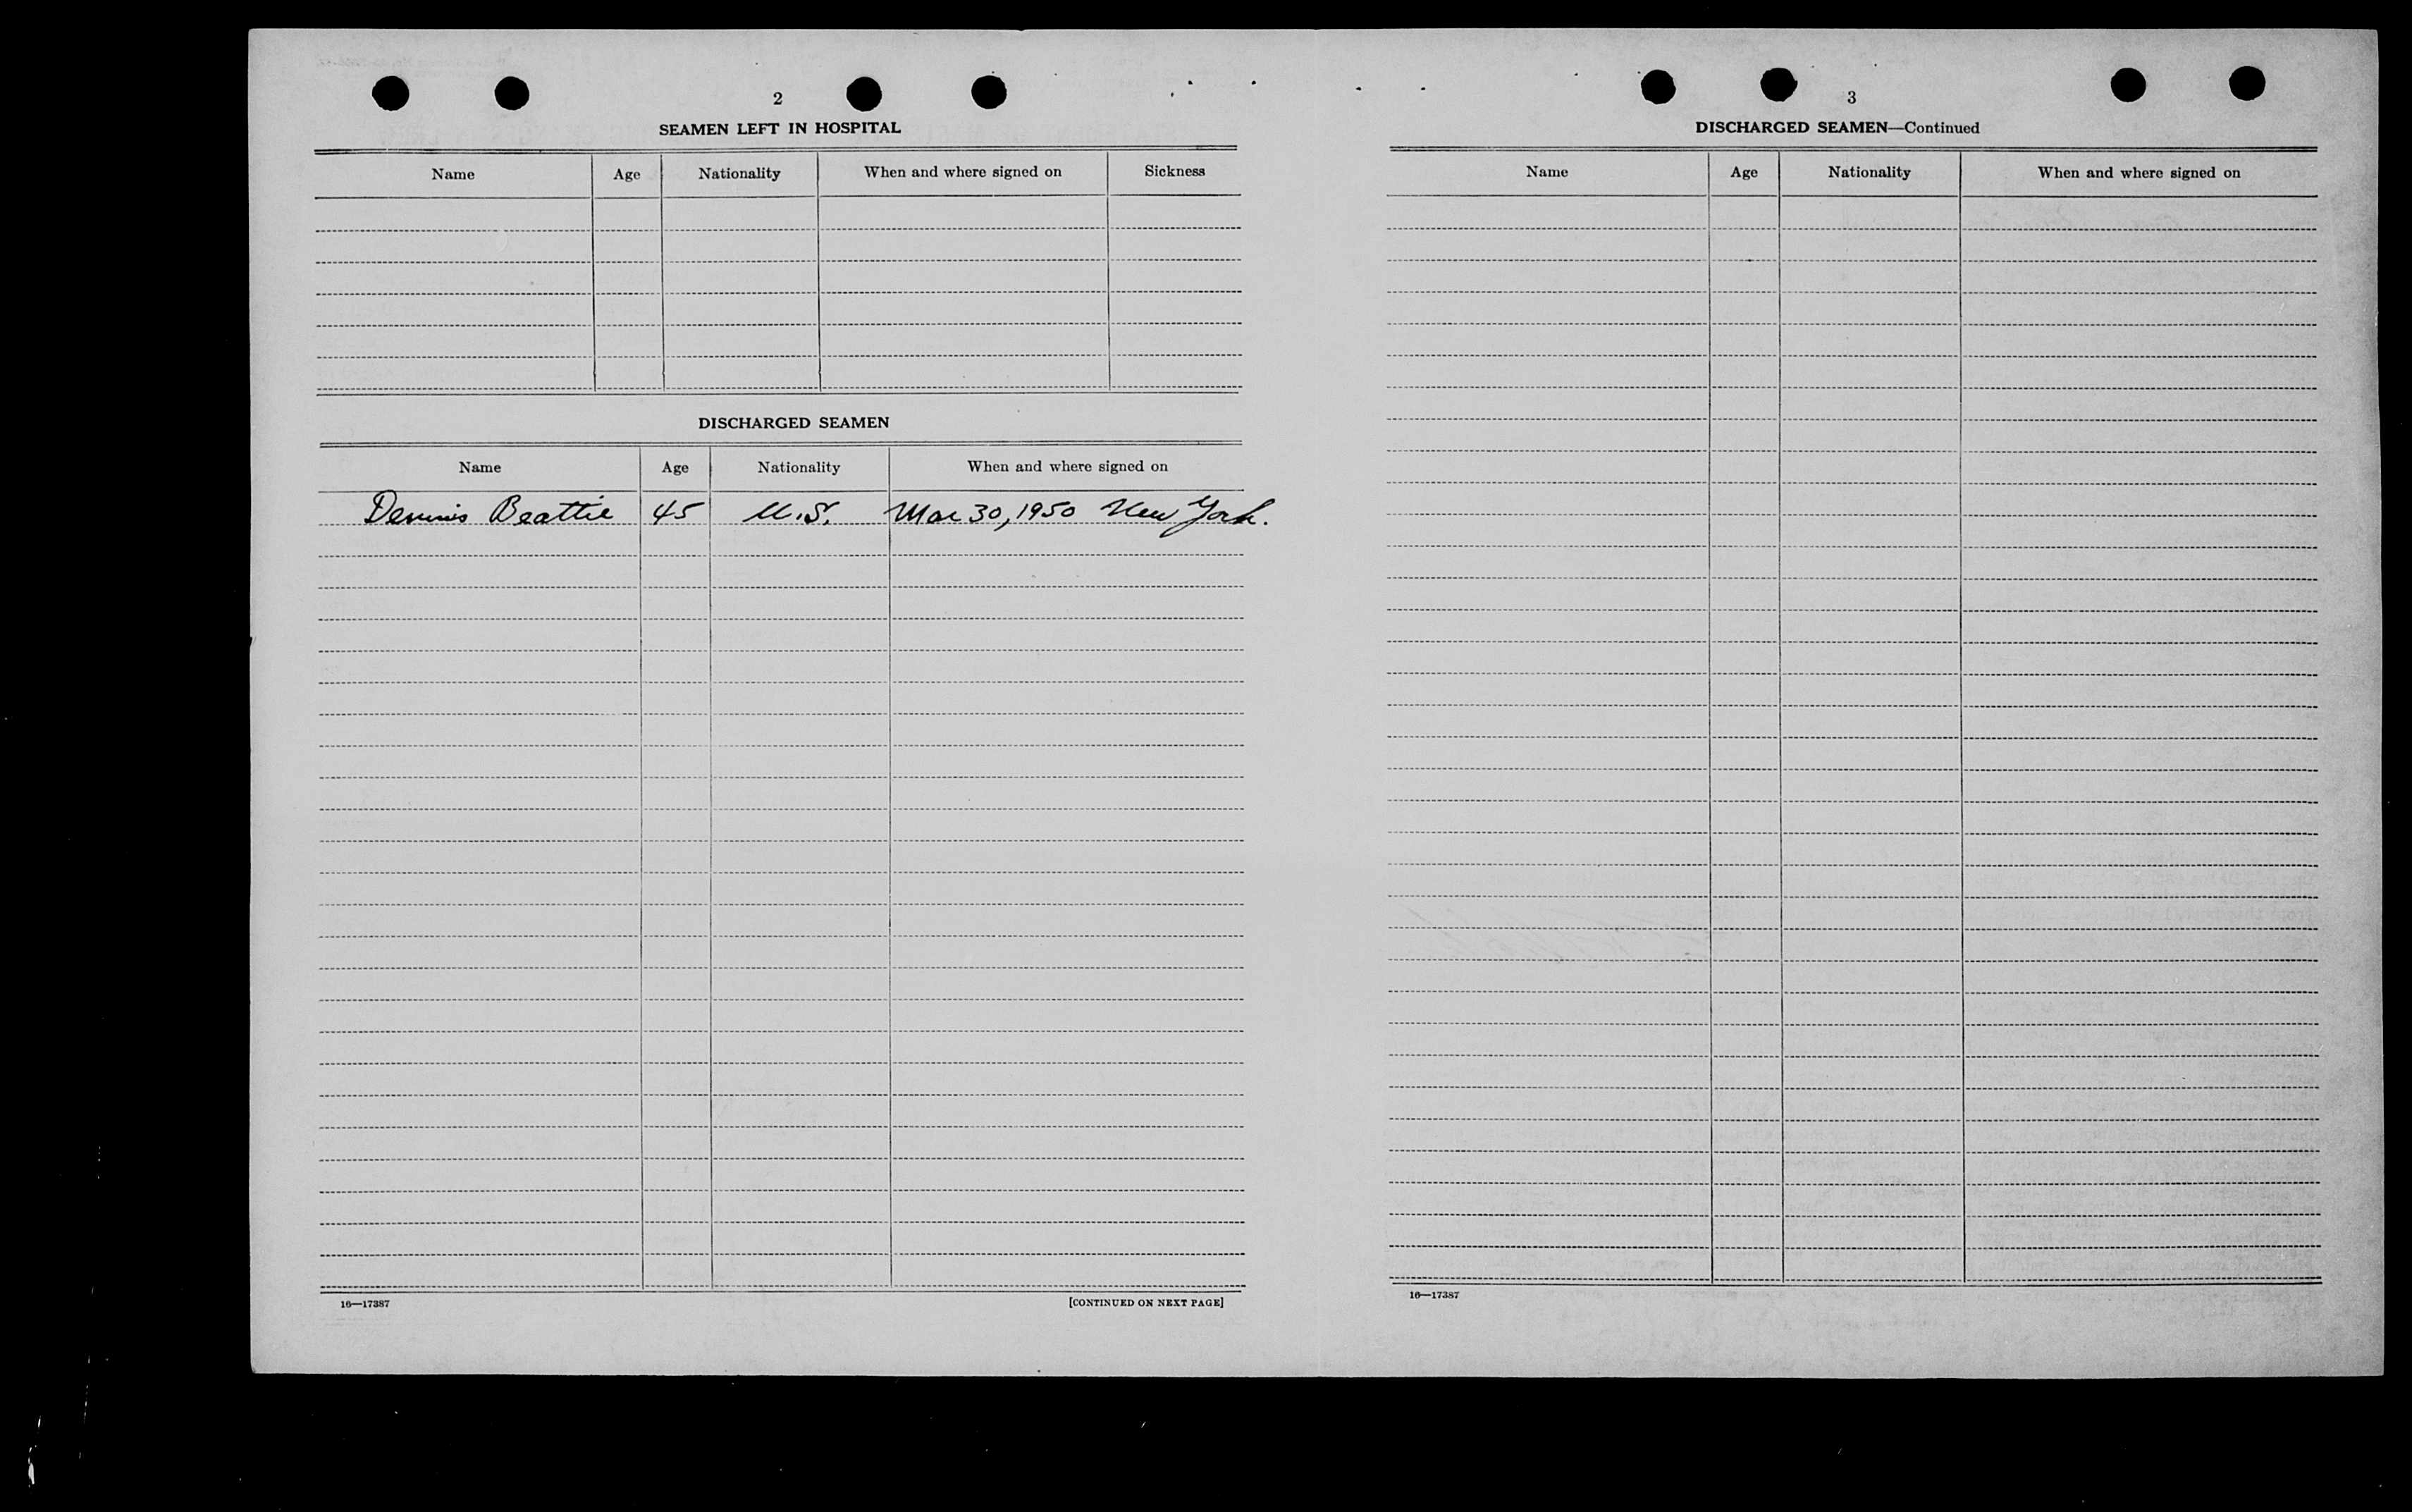 2
SEAMEN LEFT IN HOSPITAL
Name Age Nationality When and where signed on Sickness
DISCHARGED SEAMEN
Name Age Nationality When and where signed on
Dennis Beattie 45 U.S. Mar 30, 1950 New York.
16—17387 [CONTINUED ON NEXT PAGE]
3
DISCHARGED SEAMEN—Continued
Name Age Nationality When and where signed on
16—17387